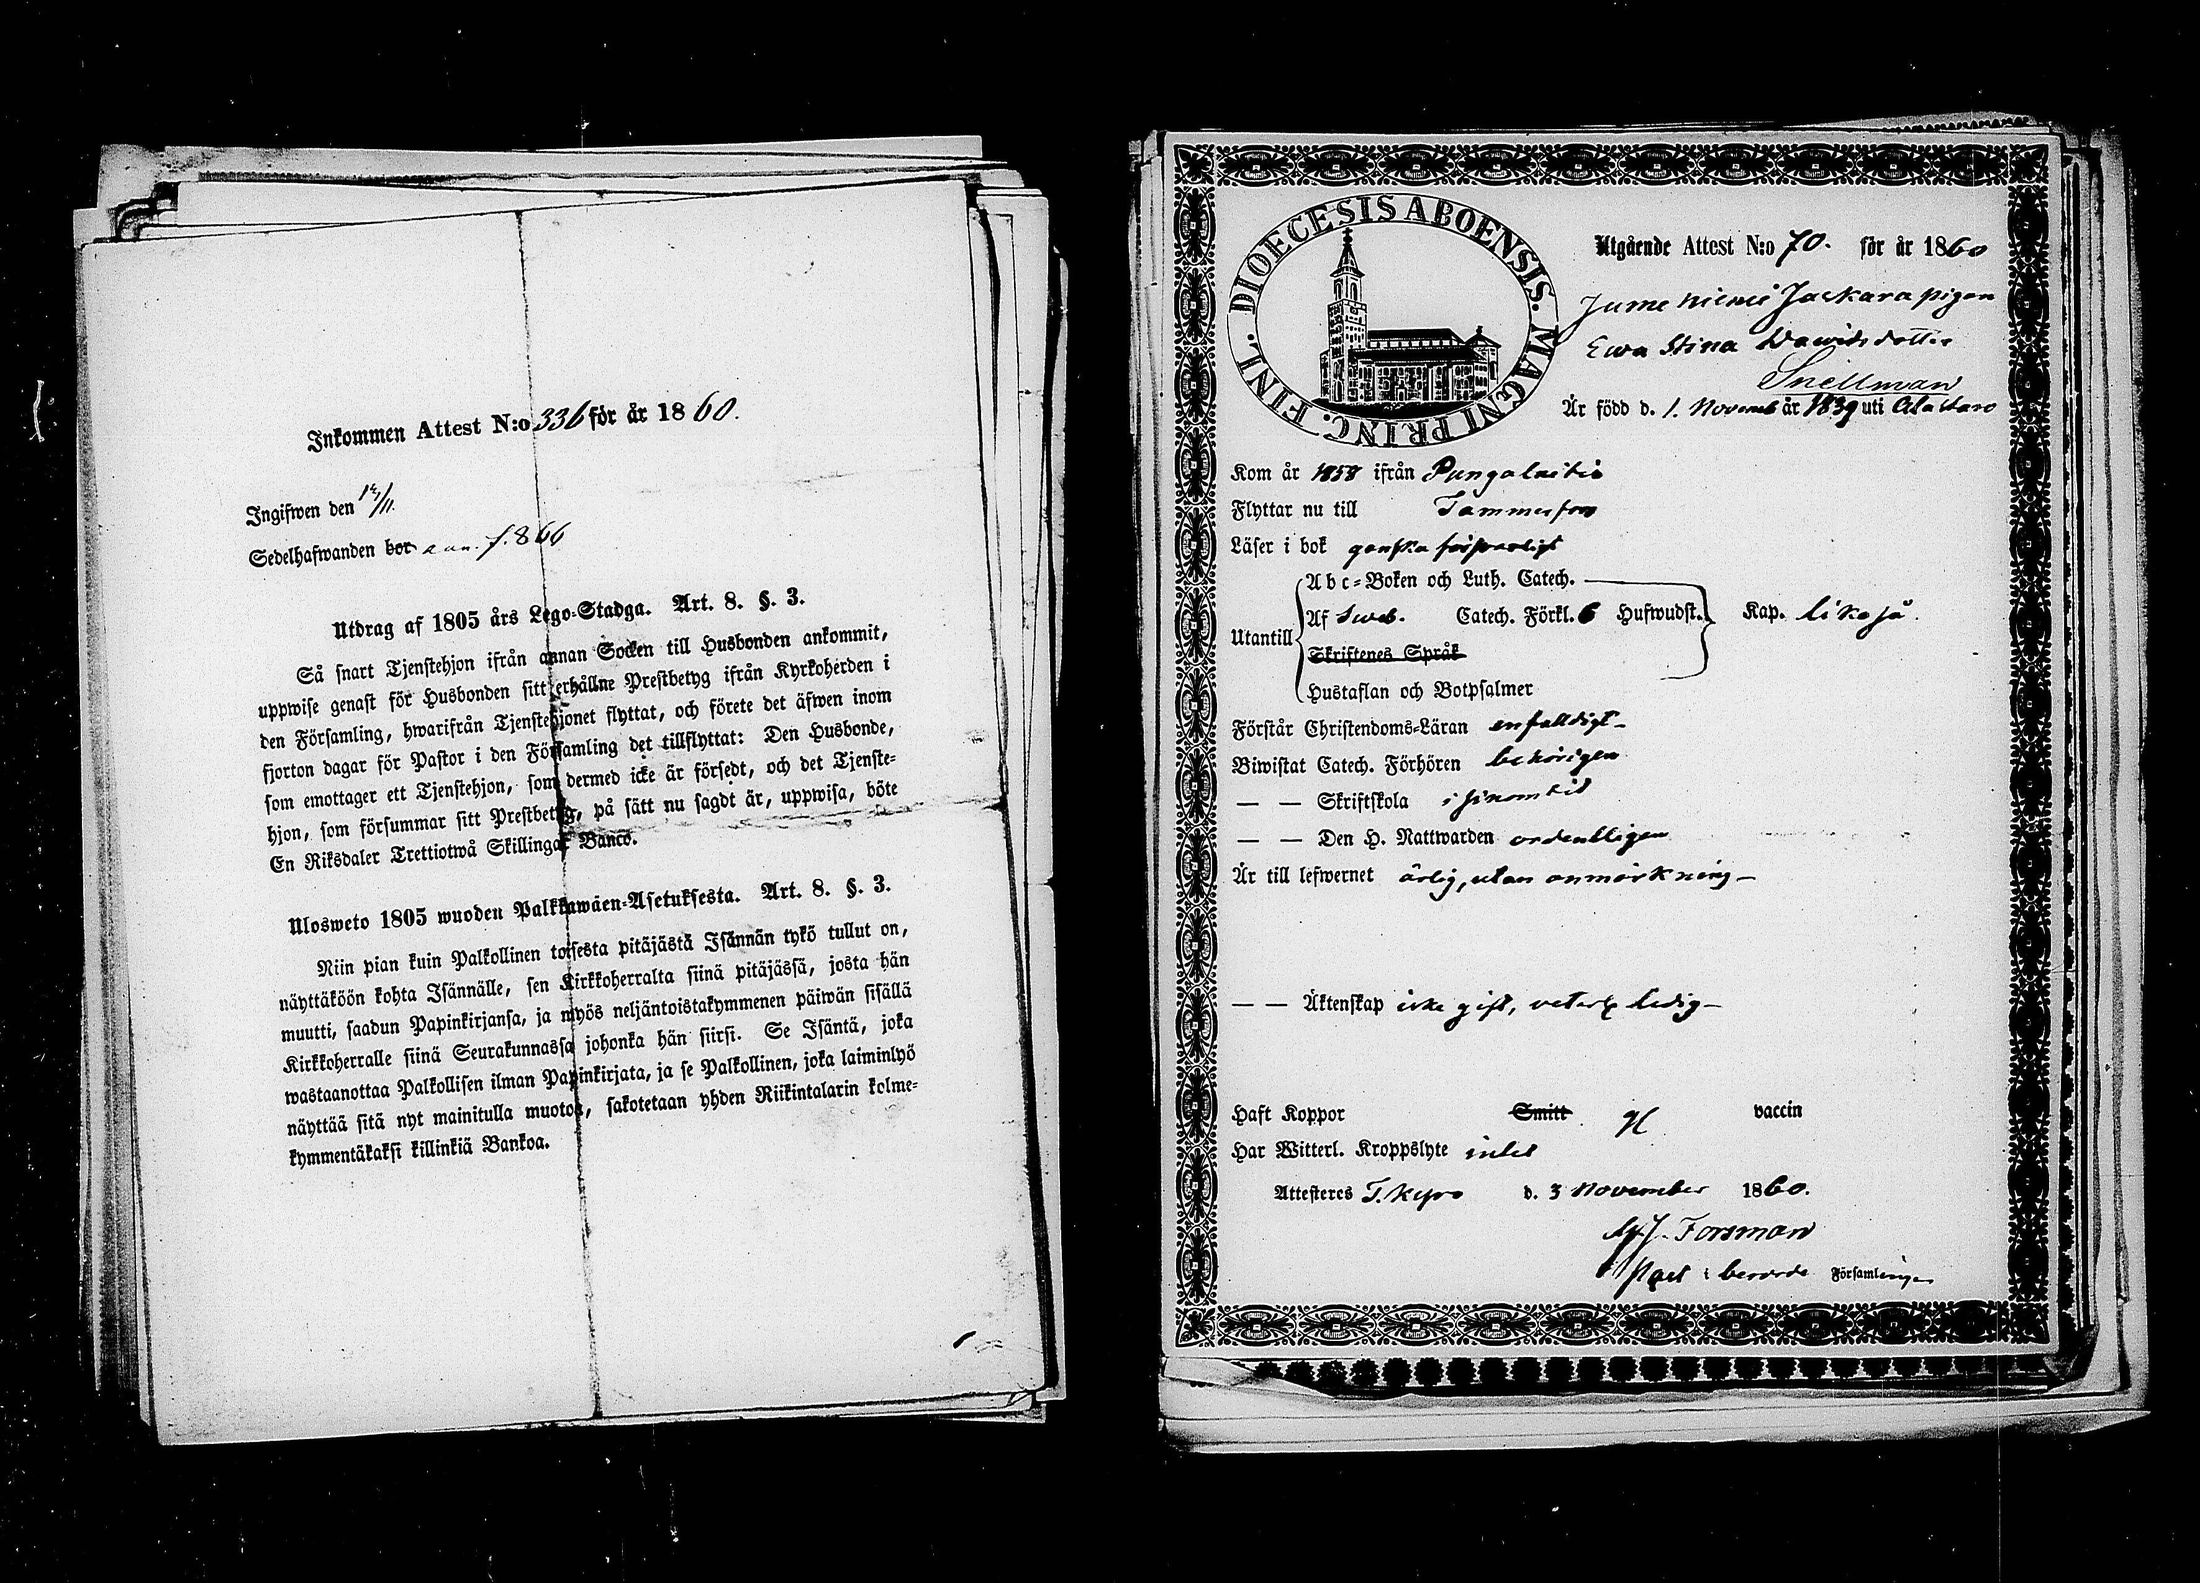 Inkommen Attest N:o 336 för år 1860.
Ingifwen den 14/11.
Sedelhafwanden bor f. 866
Utdrag af 1805 års Lego-Stadga. Art. 8. §. 3.
Så snart Tjenstehjon ifrån annan Socken till Husbonden ankommit,
uppwise genast för Husbonden sitt erhållne Prestbetyg ifrån Kyrkoherden i
den Församling, hwarifrån Tjenstehjonet flyttat, och förete det äfwen inom
fjorton dagar för Pastor i den Församling det tillflyttat: Den Husbonde,
som emottager ett Tjenstehjon, som dermed icke är försedt, och det Tjenste-
hjon, som försummar sitt Prestbetyg, på sätt nu sagdt är, uppwisa, böte
En Riksdaler Trettiotwå Skillingar Banco.
Ulosweto 1805 wuoden Palkkawäen-Asetuksesta. Art. 8. §. 3.
Niin pian kuin Palkollinen toisesta pitäjästä Isännän tykö tullut on,
näyttäköön kohta Isännälle, sen Kirkkoherralta siinä pitäjässä, josta hän
muutti, saadun Papinkirjansa, ja myös neljäntoistakymmenen päiwän sisällä
Kirkkoherralle siinä Seurakunnassa johonka hän siirsi. Se Isäntä, joka
wastaanottaa Palkollisen ilman Papinkirjata, ja se Palkollinen, joka laiminlyö
näyttää sitä nyt mainitulla muotoa, sakotetaan yhden Riikintalarin kolme-
kymmentäkaksi killinkiä Bankoa.
DIOECESIS ABOENSIS. MAGNI PRINC. FINL.
Utgående Attest N:o 70. för år 1860
Jumeniemi Jackara pigan
Ewa Stina Dawidsdotter
Snellman
Är född d. 1. Novemb år 1839 uti Alastaro
Kom år 1858 ifrån Pungalaitio
Flyttar nu till Tammerfors
Läser i bok ganska försvarligt
Abc-Boken och Luth. Catech.
Utantill Af Sweb. Catech. Förkl. 6 Hufwudst. Kap. likaså.
Skriftenes Språk
Hustaflan och Botpsalmer
Förstår Christendoms-Läran enfalldigt
Biwistat Catech. Förhören behörigen
— — Skriftskola i sinom tid
— — Den H. Nattwarden ordentligen
Är till lefwernet ärlig, utan anmärkning
— — Äktenskap icke gift, veterl. ledig
Haft Koppor Smitt vaccin
Har Witterl. Kroppslyte intet
Attesteres T. Kyro d. 3 November 1860.
Forsman
Past i berörde Församlingen